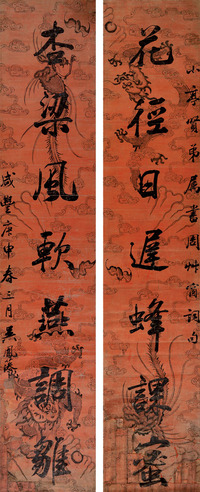 小尊贤弟属书周艸窗词句
花徑日遲蜂課蜜
杏梁風軟燕調雛
咸豐庚申春三月吳鳳藻